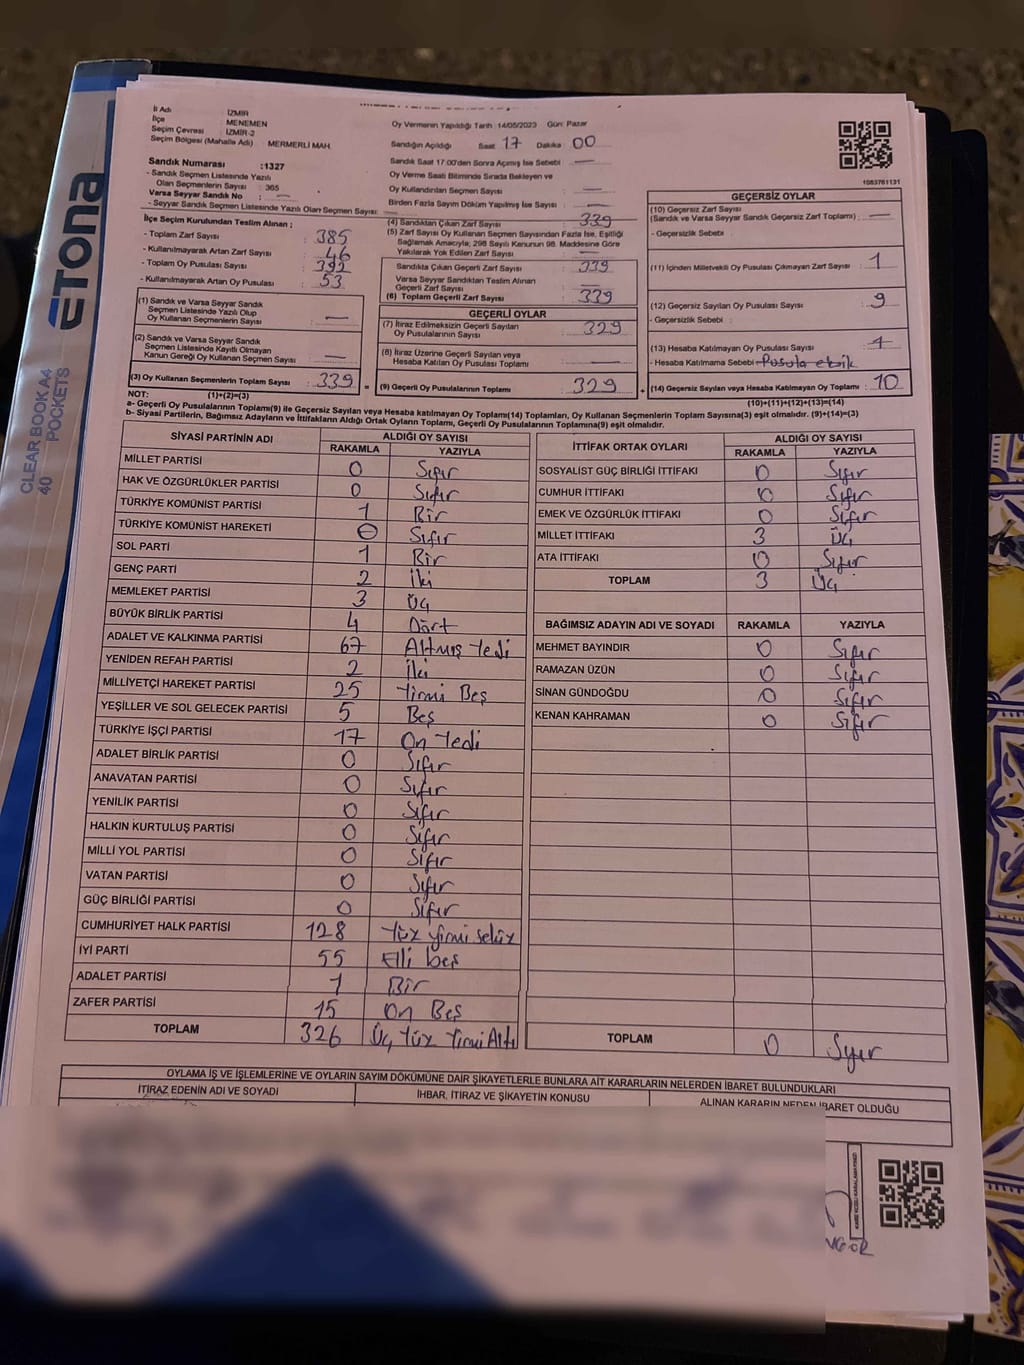 ETONA
CLEAR BOOK A4
40 POCKETS
İl Adı İZMİR
İlçe MENEMEN
Seçim Çevresi İZMİR-2
Seçim Bölgesi (Mahalle Adı) MERMERLİ MAH.
Sandık Numarası :1327
- Sandık Seçmen Listesinde Yazılı
Olan Seçmenlerin Sayısı : 365
Varsa Seyyar Sandık No : —
- Seyyar Sandık Seçmen Listesinde Yazılı Olan Seçmen Sayısı: —
Oy Vermenin Yapıldığı Tarih :14/05/2023 Gün: Pazar
Sandığın Açıldığı Saat 17 Dakika 00
Sandık Saat 17.00'den Sonra Açılmış İse Sebebi —
Oy Verme Saati Bitiminde Sırada Bekleyen ve
Oy Kullandırılan Seçmen Sayısı : —
Birden Fazla Sayım Döküm Yapılmış İse Sayısı : —
1083761131
İlçe Seçim Kurulundan Teslim Alınan ;
- Toplam Zarf Sayısı : 385
- Kullanılmayarak Artan Zarf Sayısı : 46
- Toplam Oy Pusulası Sayısı : 392
- Kullanılmayarak Artan Oy Pusulası : 53
(1) Sandık ve Varsa Seyyar Sandık
Seçmen Listesinde Yazılı Olup
Oy Kullanan Seçmenlerin Sayısı : —
(2) Sandık ve Varsa Seyyar Sandık
Seçmen Listesinde Kayıtlı Olmayan
Kanun Gereği Oy Kullanan Seçmen Sayısı : —
(3) Oy Kullanan Seçmenlerin Toplam Sayısı : 339 =
(1)+(2)=(3)
(4) Sandıktan Çıkan Zarf Sayısı : 339
(5) Zarf Sayısı Oy Kullanan Seçmen Sayısından Fazla İse, Eşitliği
Sağlamak Amacıyla; 298 Sayılı Kanunun 98. Maddesine Göre
Yakılarak Yok Edilen Zarf Sayısı : —
Sandıkta Çıkan Geçerli Zarf Sayısı : 339
Varsa Seyyar Sandıktan Teslim Alınan
Geçerli Zarf Sayısı : —
(6) Toplam Geçerli Zarf Sayısı : 339
GEÇERLİ OYLAR
(7) İtiraz Edilmeksizin Geçerli Sayılan
Oy Pusulalarının Sayısı : 329
(8) İtiraz Üzerine Geçerli Sayılan veya
Hesaba Katılan Oy Pusulası Toplamı : —
(9) Geçerli Oy Pusulalarının Toplamı : 329 +
GEÇERSİZ OYLAR
(10) Geçersiz Zarf Sayısı
(Sandık ve Varsa Seyyar Sandık Geçersiz Zarf Toplamı) : —
- Geçersizlik Sebebi :
(11) İçinden Milletvekili Oy Pusulası Çıkmayan Zarf Sayısı : 1
(12) Geçersiz Sayılan Oy Pusulası Sayısı : 9
- Geçersizlik Sebebi :
(13) Hesaba Katılmayan Oy Pusulası Sayısı : 1
- Hesaba Katılmama Sebebi - Pusula eksik
(14) Geçersiz Sayılan veya Hesaba Katılmayan Oy Toplamı : 10
(10)+(11)+(12)+(13)=(14)
NOT:
a- Geçerli Oy Pusulalarının Toplamı(9) ile Geçersiz Sayılan veya Hesaba katılmayan Oy Toplamı(14) Toplamları, Oy Kullanan Seçmenlerin Toplam Sayısına(3) eşit olmalıdır. (9)+(14)=(3)
b- Siyasi Partilerin, Bağımsız Adayların ve İttifakların Aldığı Ortak Oyların Toplamı, Geçerli Oy Pusulalarının Toplamına(9) eşit olmalıdır.
SİYASİ PARTİNİN ADI ALDIĞI OY SAYISI
RAKAMLA YAZIYLA
MİLLET PARTİSİ 0 Sıfır
HAK VE ÖZGÜRLÜKLER PARTİSİ 0 Sıfır
TÜRKİYE KOMÜNİST PARTİSİ 1 Bir
TÜRKİYE KOMÜNİST HAREKETİ 0 Sıfır
SOL PARTİ 1 Bir
GENÇ PARTİ 2 İki
MEMLEKET PARTİSİ 3 Üç
BÜYÜK BİRLİK PARTİSİ 4 Dört
ADALET VE KALKINMA PARTİSİ 67 Altmış Yedi
YENİDEN REFAH PARTİSİ 2 İki
MİLLİYETÇİ HAREKET PARTİSİ 25 Yirmi Beş
YEŞİLLER VE SOL GELECEK PARTİSİ 5 Beş
TÜRKİYE İŞÇİ PARTİSİ 17 On Yedi
ADALET BİRLİK PARTİSİ 0 Sıfır
ANAVATAN PARTİSİ 0 Sıfır
YENİLİK PARTİSİ 0 Sıfır
HALKIN KURTULUŞ PARTİSİ 0 Sıfır
MİLLİ YOL PARTİSİ 0 Sıfır
VATAN PARTİSİ 0 Sıfır
GÜÇ BİRLİĞİ PARTİSİ 0 Sıfır
CUMHURİYET HALK PARTİSİ 128 Yüz yirmi sekiz
İYİ PARTİ 55 Elli beş
ADALET PARTİSİ 1 Bir
ZAFER PARTİSİ 15 On Beş
TOPLAM 326 Üç Yüz Yirmi Altı
İTTİFAK ORTAK OYLARI ALDIĞI OY SAYISI
RAKAMLA YAZIYLA
SOSYALİST GÜÇ BİRLİĞİ İTTİFAKI 0 Sıfır
CUMHUR İTTİFAKI 0 Sıfır
EMEK VE ÖZGÜRLÜK İTTİFAKI 0 Sıfır
MİLLET İTTİFAKI 3 Üç
ATA İTTİFAKI 0 Sıfır
TOPLAM 3 Üç
BAĞIMSIZ ADAYIN ADI VE SOYADI RAKAMLA YAZIYLA
MEHMET BAYINDIR 0 Sıfır
RAMAZAN ÜZÜN 0 Sıfır
SİNAN GÜNDOĞDU 0 Sıfır
KENAN KAHRAMAN 0 Sıfır
TOPLAM 0 Sıfır
OYLAMA İŞ VE İŞLEMLERİNE VE OYLARIN SAYIM DÖKÜMÜNE DAİR ŞİKAYETLERLE BUNLARA AİT KARARLARIN NELERDEN İBARET BULUNDUKLARI
İTİRAZ EDENİN ADI VE SOYADI İHBAR, İTİRAZ VE ŞİKAYETİN KONUSU ALINAN KARARIN NEDEN İBARET OLDUĞU